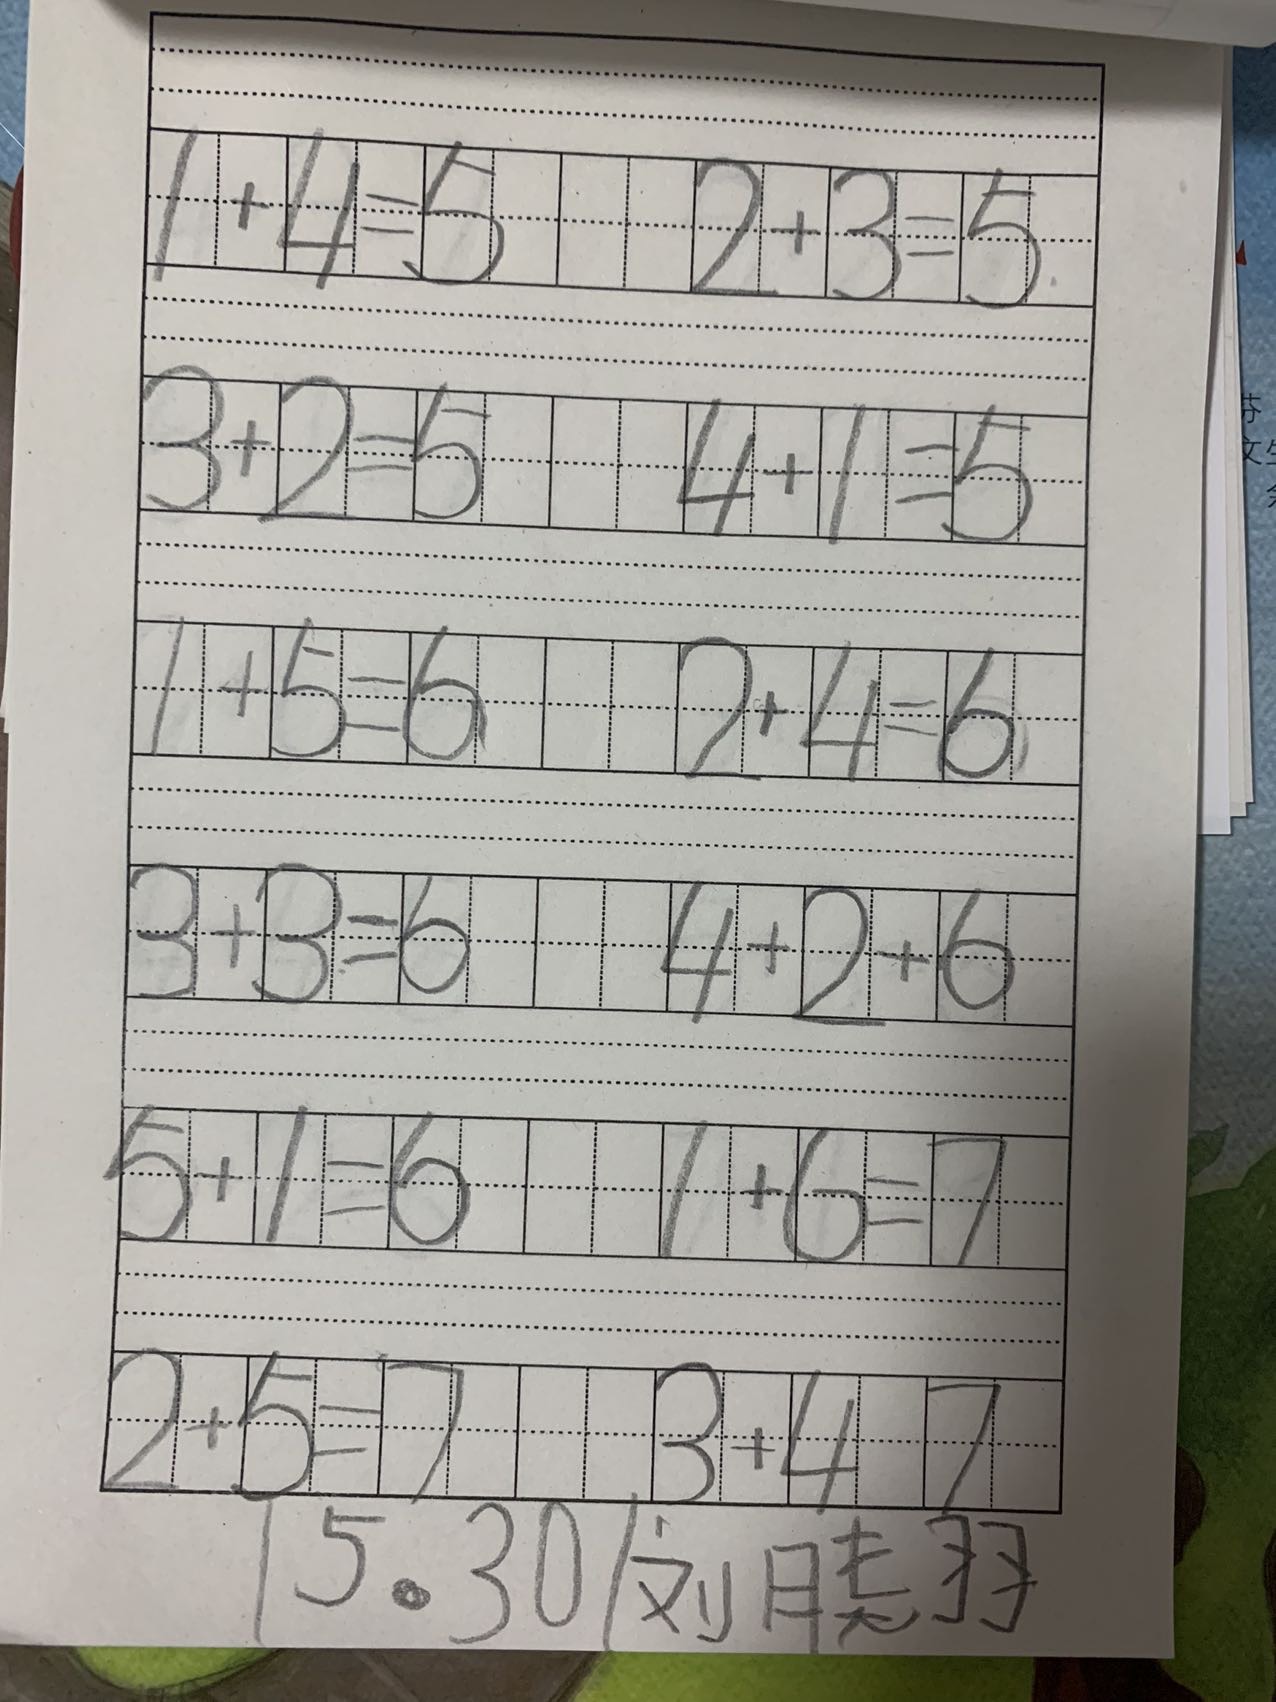 1+4=5 2+3=5
3+2=5 4+1=5
1+5=6 2+4=6
3+3=6 4+2+6
5+1=6 1+6=7
2+5=7 3+4 7
5.30 刘 羽